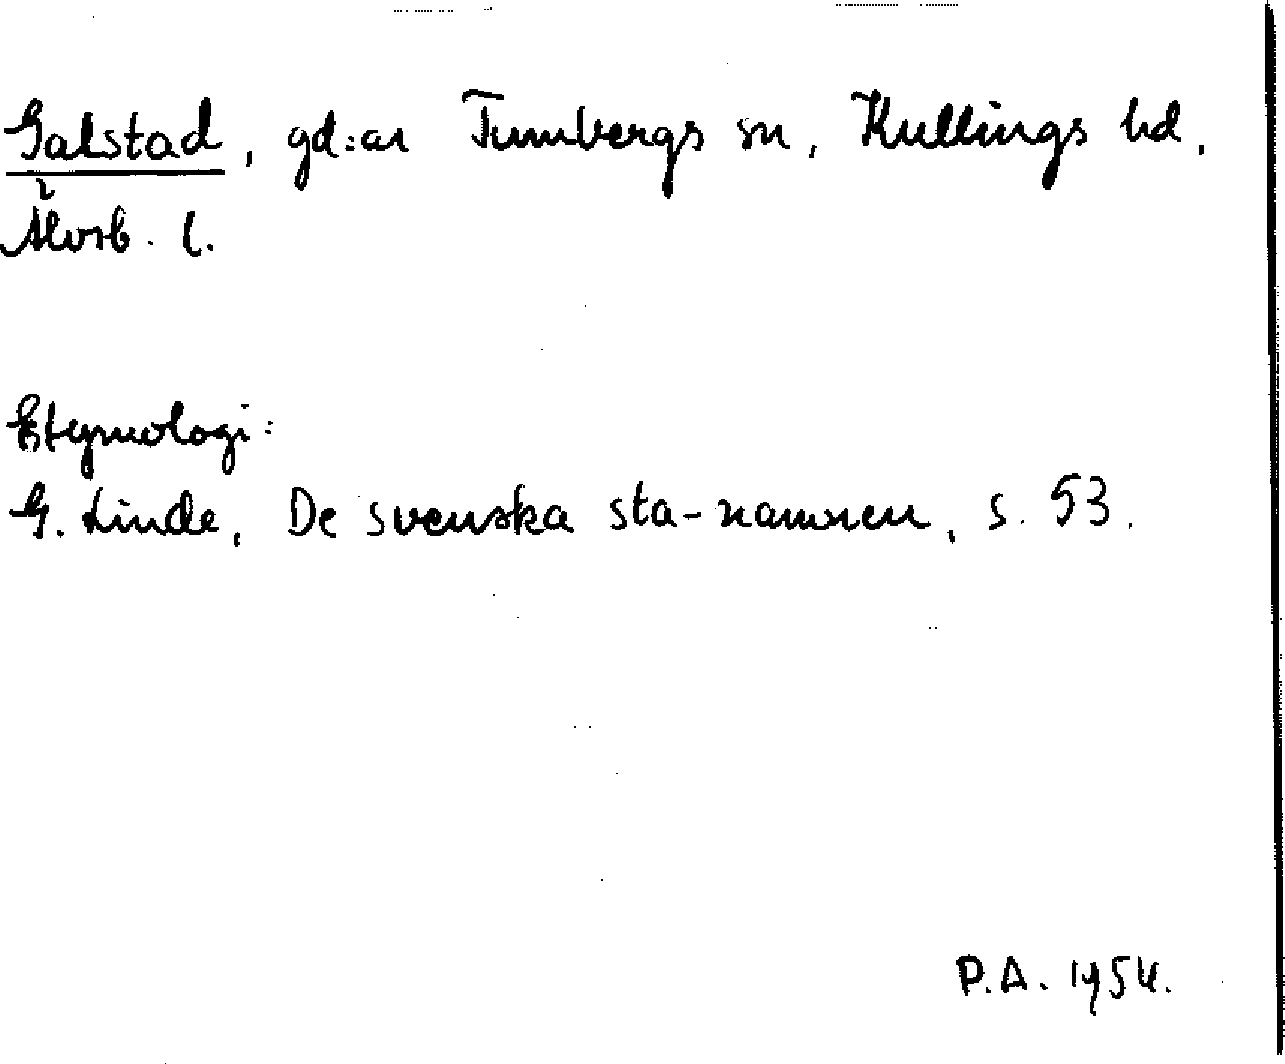 Galstad, gd:ar Tumbergs sn, Kullings hd,
Älvsb. l.
Etymologi:
G. Linde, De svenska sta-namnen, s. 53.
P.A. 1954.